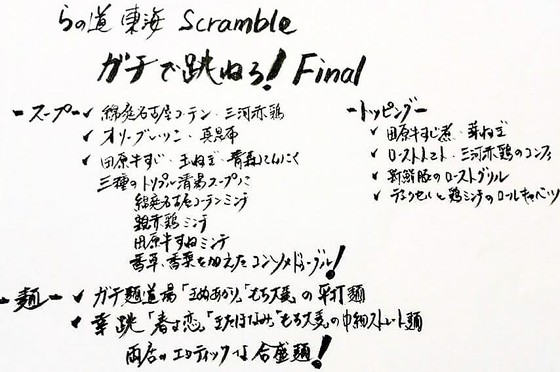 らの道 東海 Scramble
ガチで跳ねろ! Final
ースープー
✓ 錦庭名古屋コーチン・三河赤鶏
✓ オリーブレンコン・真昆布
✓ 田原牛すじ・玉ねぎ・青森にんにく
三種のトリプル清湯スープに
錦庭名古屋コーチンミンチ
親赤鶏ミンチ
田原牛すねミンチ
香草、香菜を加えたコンソメドゥーブル!
ー麺ー
✓ ガチ麺道場「きぬあかり」「もち大麦」の平打麺
✓ 幸跳「春よ恋」「きたほなみ」「もち大麦」の中細ストレート麺
両店がエロティックな合盛麺!
ートッピングー
✓ 田原牛すじ煮・芽ねぎ
✓ ローストトマト・三河赤鶏のコンフィ
✓ 新鮮豚のローストグリル
✓ 鶏ミンチのロールキャベツ